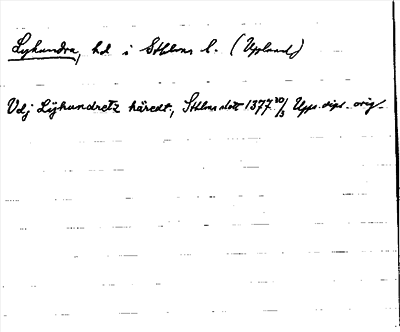 Lyhundra, hd i Sthlms l. (Uppland)
Vdj Lijhundretz häredt, Sthlms slott 1377 30/3 Upps. dipl. orig.